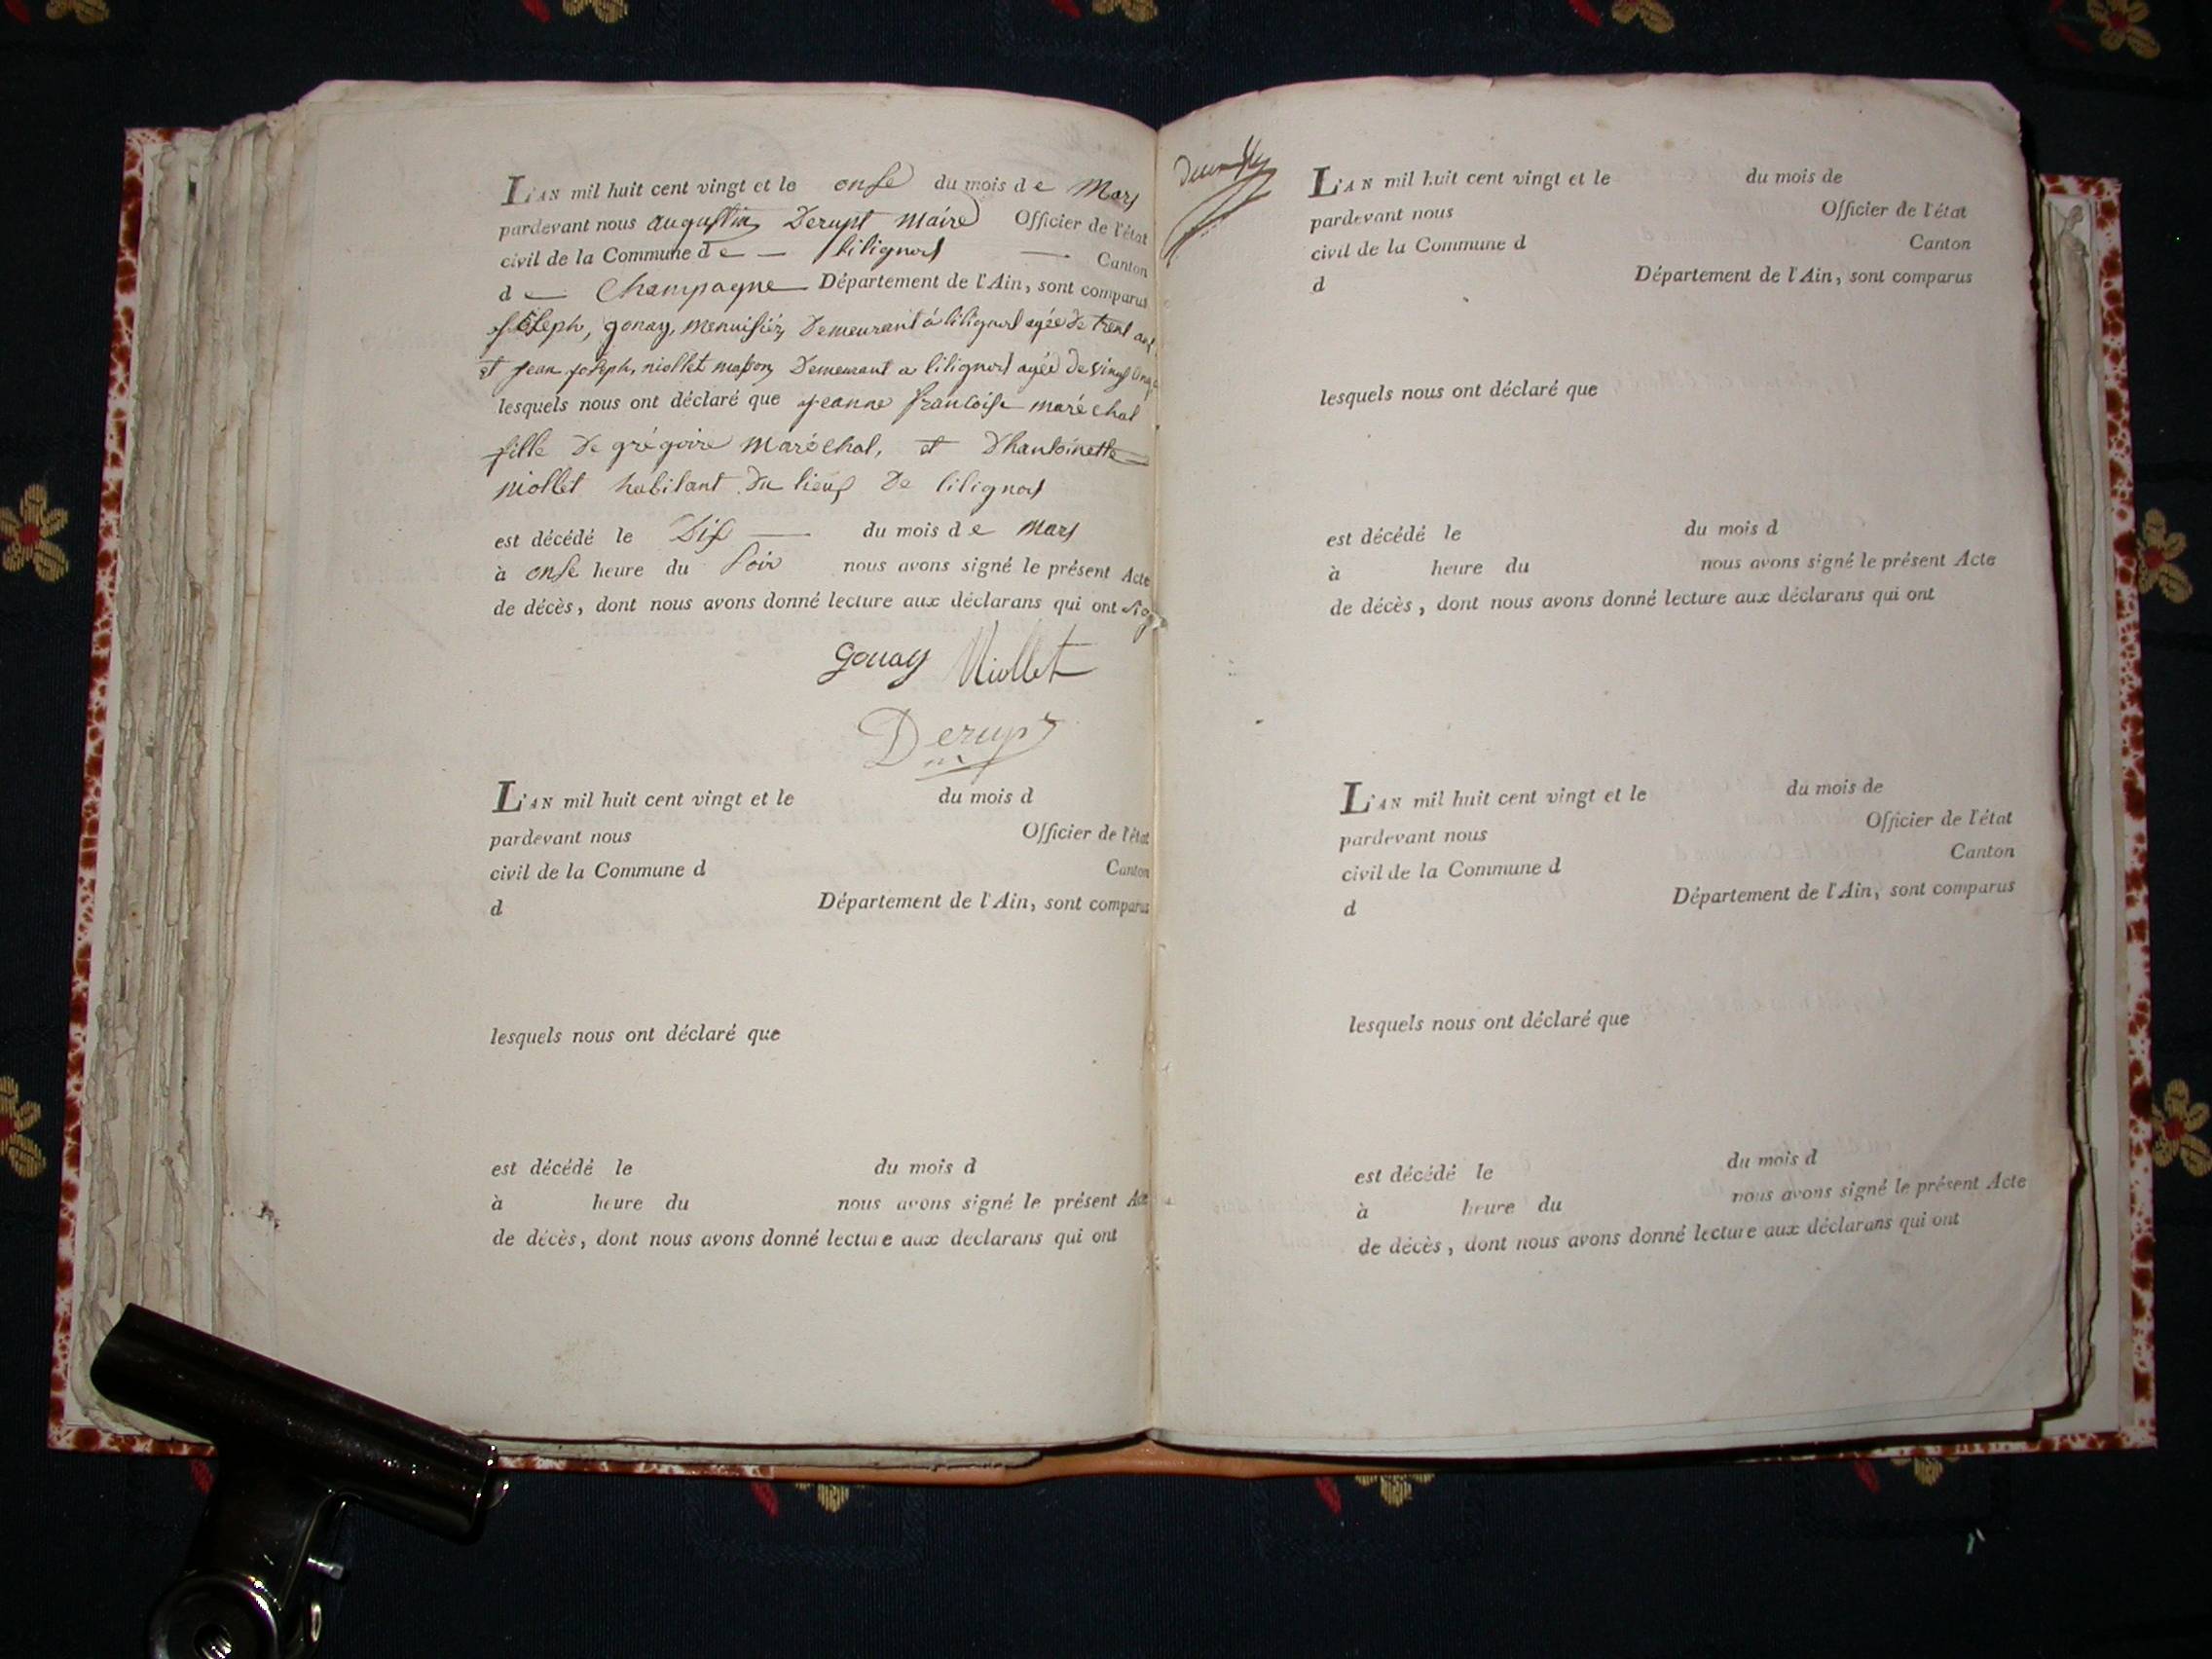 L'AN mil huit cent vingt et le onse du mois de Mars
pardevant nous augustin Derupt maire Officier de l'état
civil de la Commune de — lilignod — Canton
de — Champagne Département de l'Ain, sont comparus
joseph, gonay, menuisier, Demeurant à lilignod agée de trent ans
et jean joseph, niollet mason, Demeurant a lilignod agée de vingt
lesquels nous ont déclaré que jeanne francoise maréchal
fille De grégoire Maréchal, et Dhantoinette
niollet habitant Du lieux De lilignod
est décédé le Dix — du mois de Mars
à onse heure du soir nous avons signé le présent Acte
de décès, dont nous avons donné lecture aux déclarans qui ont sig
gonay Niollet
Derupt
L'AN mil huit cent vingt et le du mois d
pardevant nous Officier de l'état
civil de la Commune d Canton
d Département de l'Ain, sont comparus
lesquels nous ont déclaré que
est décédé le du mois d
à heure du nous avons signé le présent Acte
de décès, dont nous avons donné lecture aux declarans qui ont
L'AN mil huit cent vingt et le du mois de
pardevant nous Officier de l'état
civil de la Commune d Canton
d Département de l'Ain, sont comparus
lesquels nous ont déclaré que
est décédé le du mois d
à heure du nous avons signé le présent Acte
de décès, dont nous avons donné lecture aux déclarans qui ont
L'AN mil huit cent vingt et le du mois de
pardevant nous Officier de l'état
civil de la Commune d Canton
d Département de l'Ain, sont comparus
lesquels nous ont déclaré que
est décédé le du mois d
à heure du nous avons signé le présent Acte
de décès, dont nous avons donné lecture aux déclarans qui ont